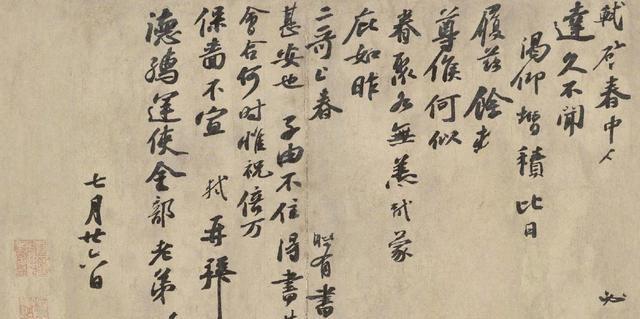 軾啓春中 必
達久不聞
渴仰增積比日
履茲餘
尊候何似
眷聚各無恙軾蒙
庇如昨
二哥上春 時有書
甚安也子由不住得書
會合何時惟祝倍万
保嗇不宣 軾再拜
德孺運使金部老弟
七月廿六日